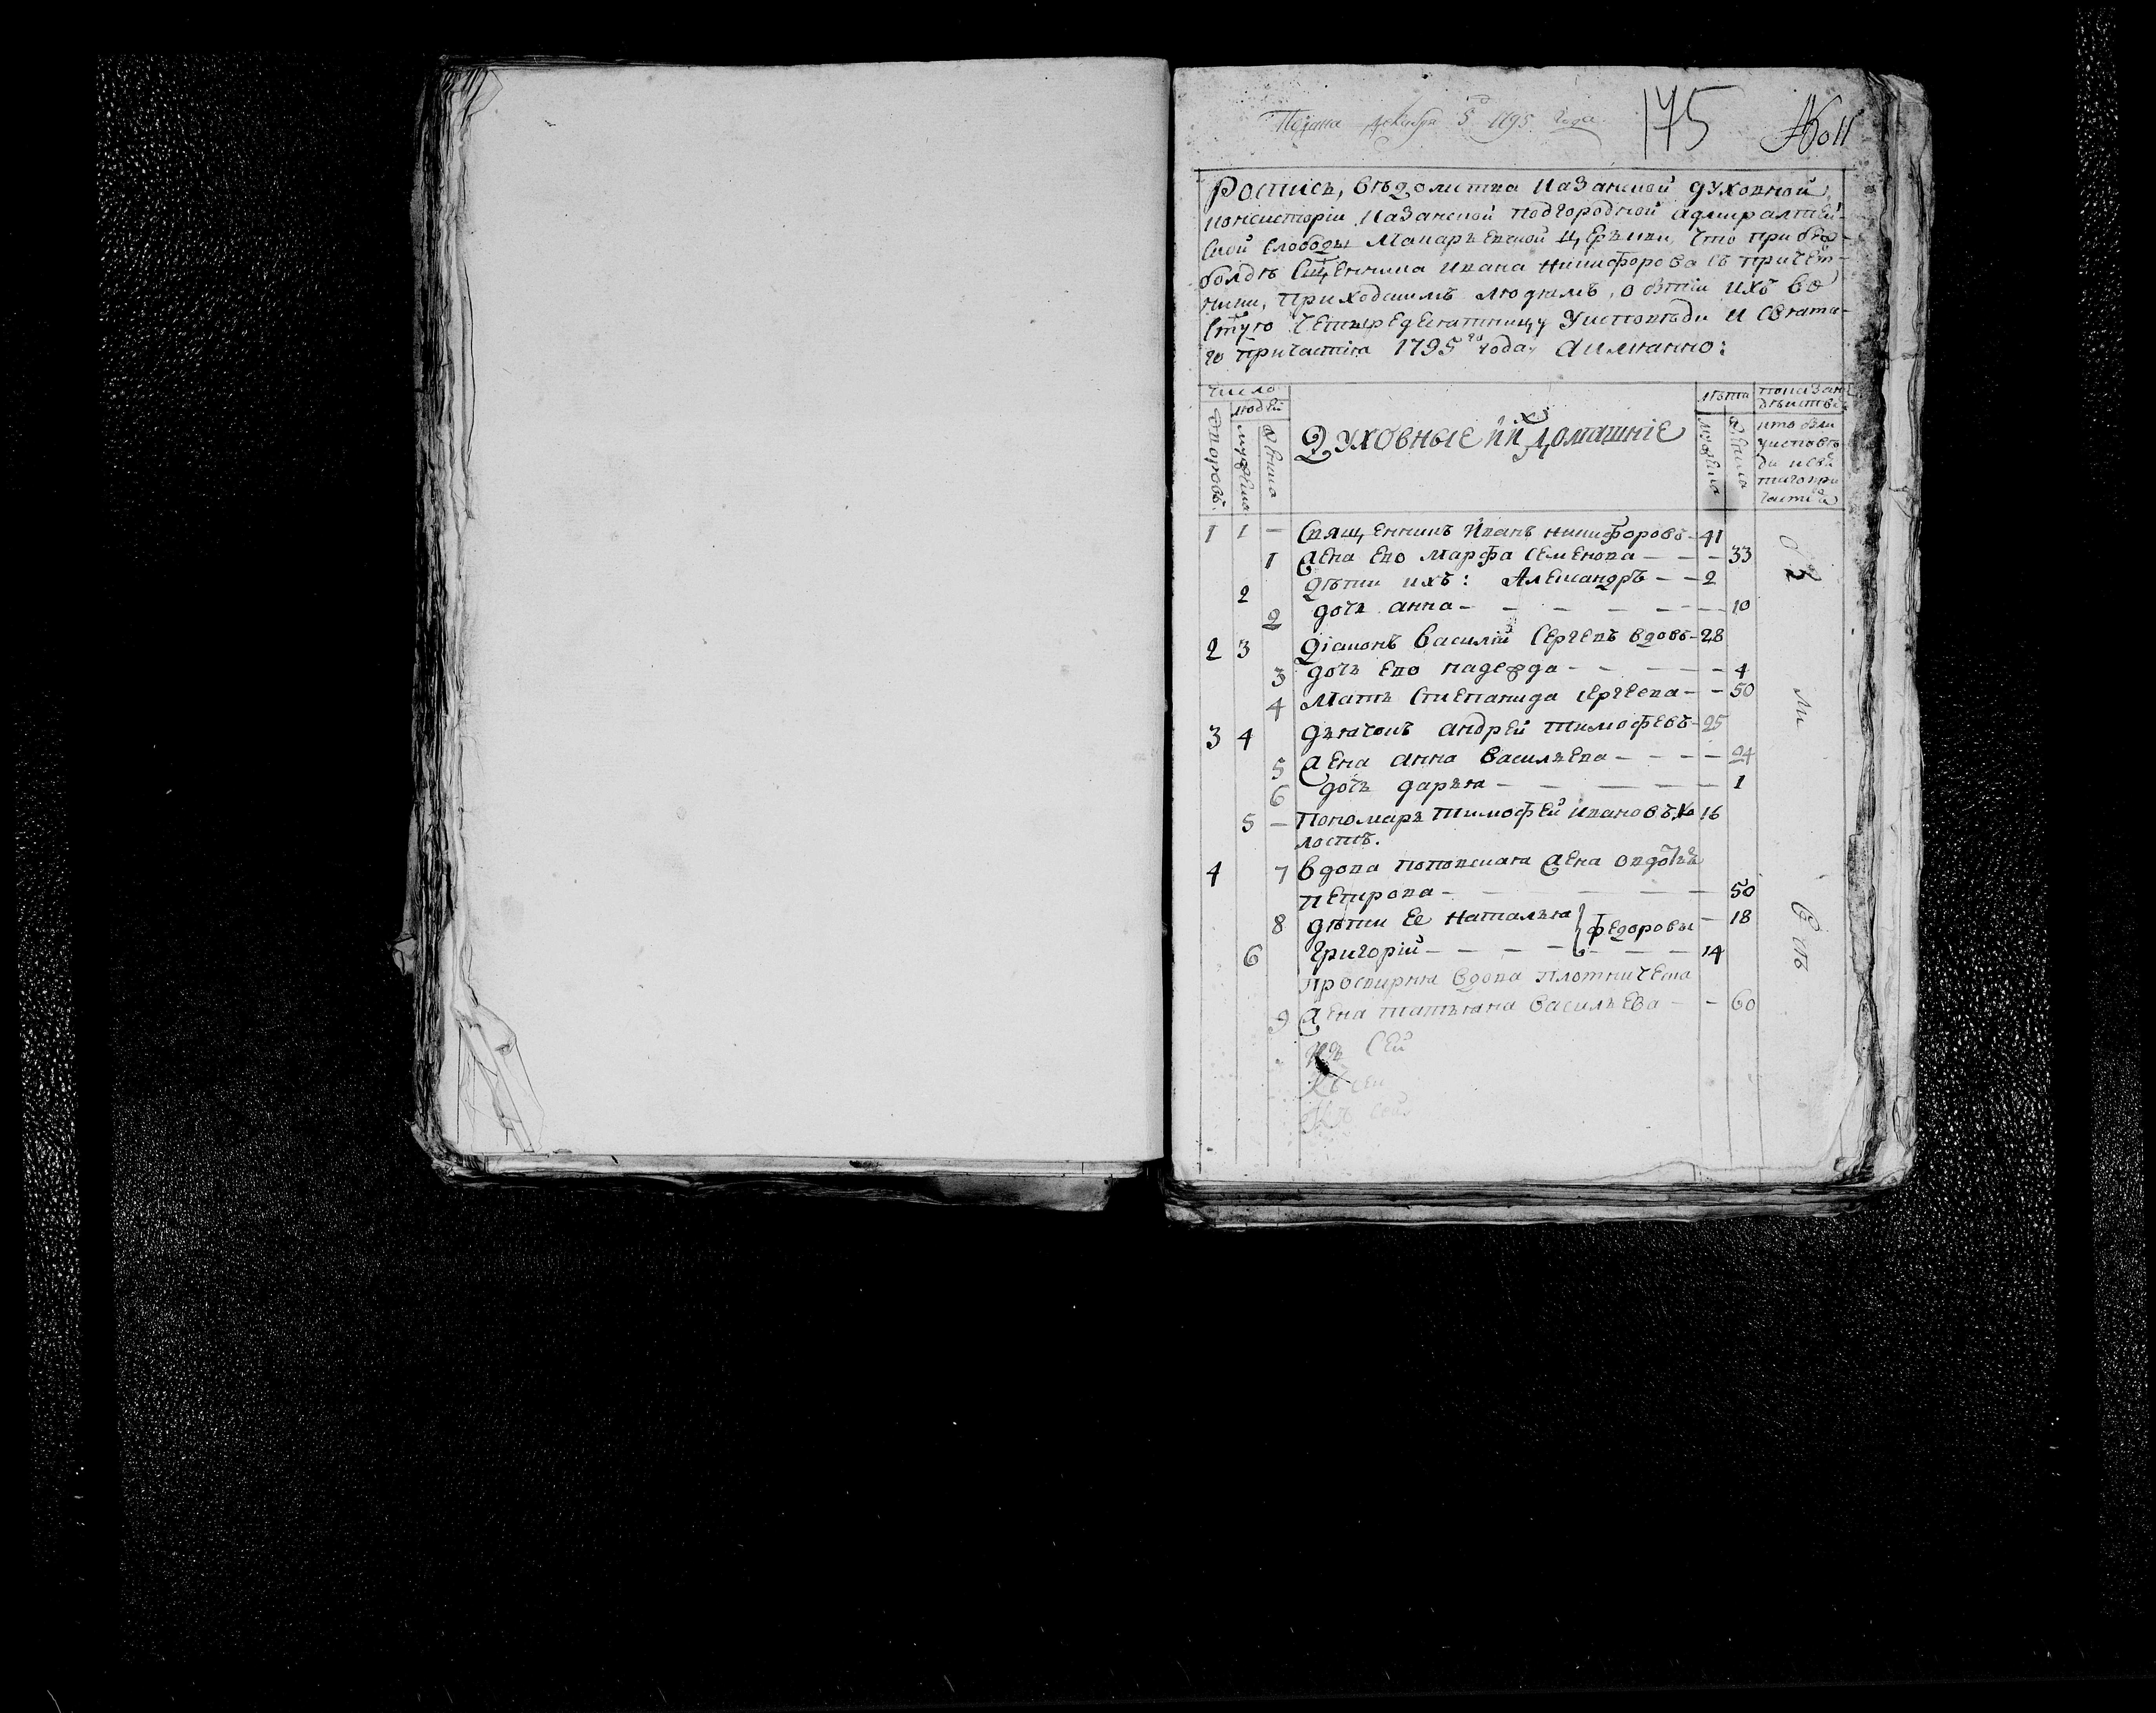 Подана декабря 5 го 1795 года.
175
№ 11
Роспись, вѣдомства казанской духовной
консисторіи казанской подгородной адмиралтей-
ской слободы Макарьевской церькви, что при
Сщ҃енника ивана никифорова съ причет-
ники, приходскимъ людямъ, о бытіи ихъ во
с҃тую четыредесятницу у исповѣди и свята-
го причастія 1795 го года, а имянно:
число
людей
дворовъ.
мужеска
женска
Духовные и ихъ домашніе
лѣта
мужеска
женска
показан
дѣиства
кто был
у исповѣ
ди и свя
таго при
частія
1 1 — Священникъ Иванъ никифоровъ — 41
1 жена ево марфа семенова — — — 33
2 дѣти ихъ: Александръ — — 2
2 дочь анна — — — — — — — 10
2 3 Діаконъ василій сергеевъ вдовъ — 28
3 дочь ево надежда — — — — — 4
4 мать степанида сергеева — — 50
3 4 дьячокъ андрей тимофевъ — 25
5 жена анна васильева — — — — 24
6 дочь дарья — — — — — — 1
5 — Пономарь тимофей ивановъ, хо 16
лостъ.
4 7 вдова поповская жена овдотья
петрова — — — — — 50
8 дѣти ее наталья } федоровы — 18
6 григорій — — — — — — — 14
просвирня вдова плотничена
9 жена татьяна васильева — — 60
Къ сей
Къ сей
Къ сей
бы
ли
всѣ